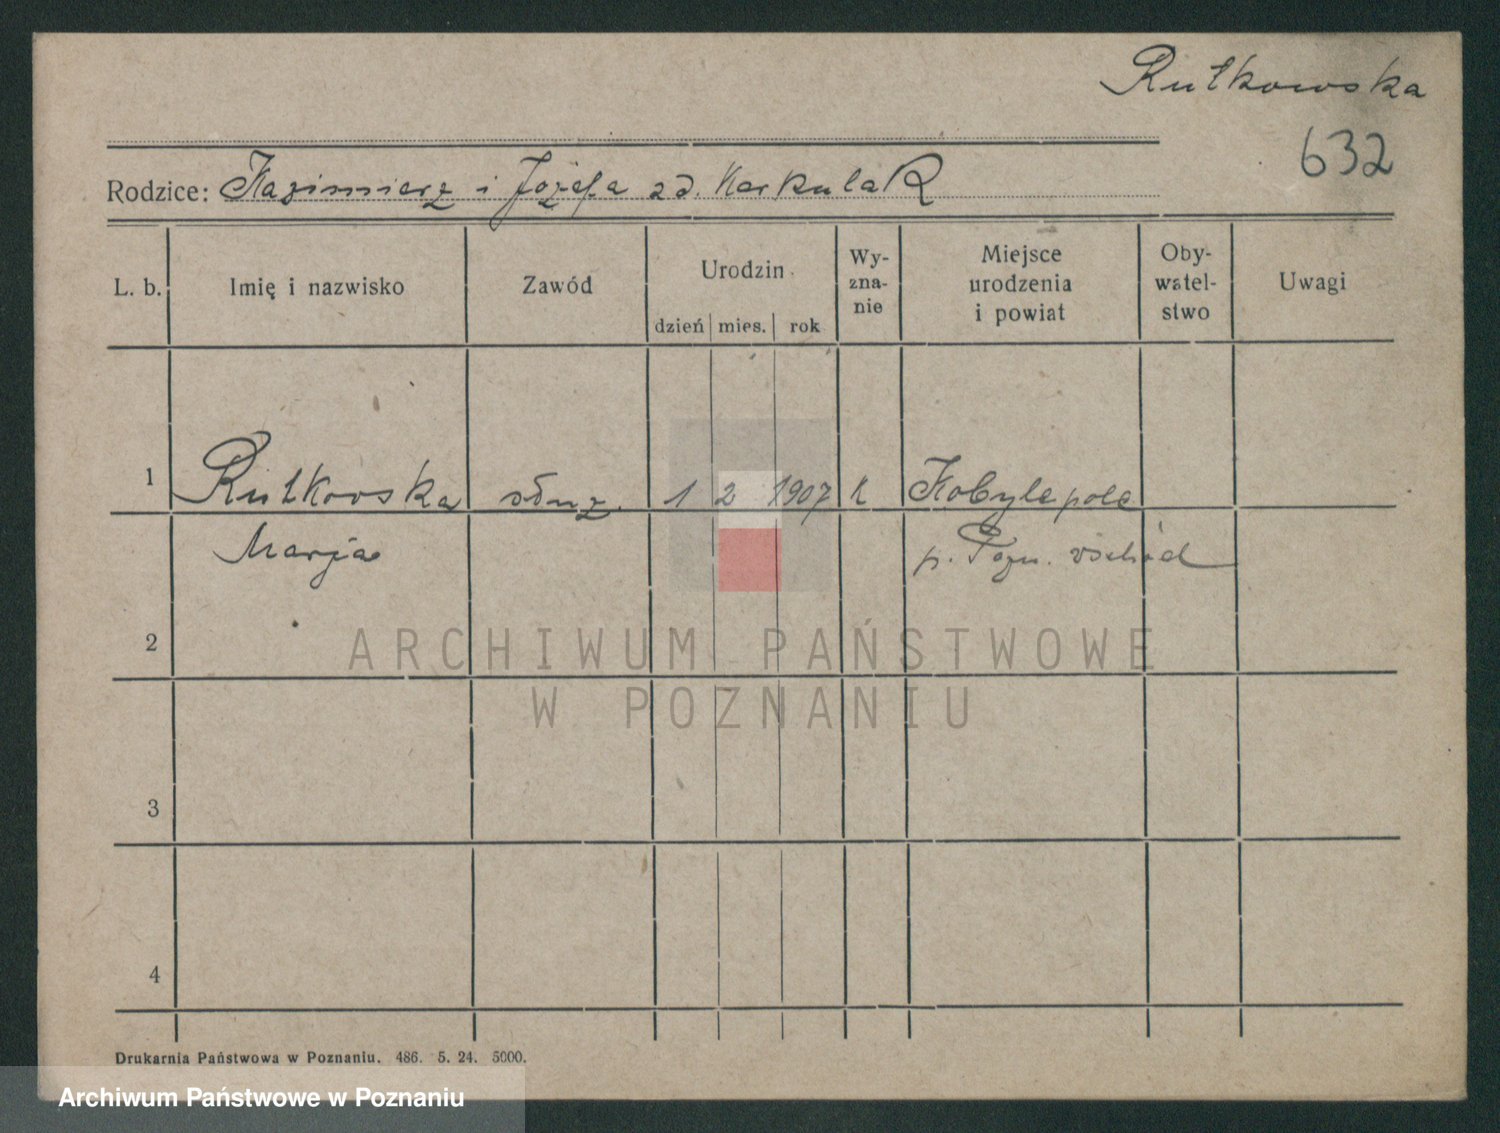 Rutkowska
632
Rodzice: Kazimierz i Józefa zd. Karkulak
L. b. Imię i nazwisko Zawód Urodzin dzień mies. rok Wy-zna-nie Miejsce urodzenia i powiat Oby-watel-stwo Uwagi
1 Rutkowska służ. 1 2 1907 K Kobylepole
Marja p. Pozn. wschód
2
ARCHIWUM PAŃSTWOWE
W POZNANIU
3
4
Drukarnia Państwowa w Poznaniu. 486. 5. 24. 5000.
Archiwum Państwowe w Poznaniu